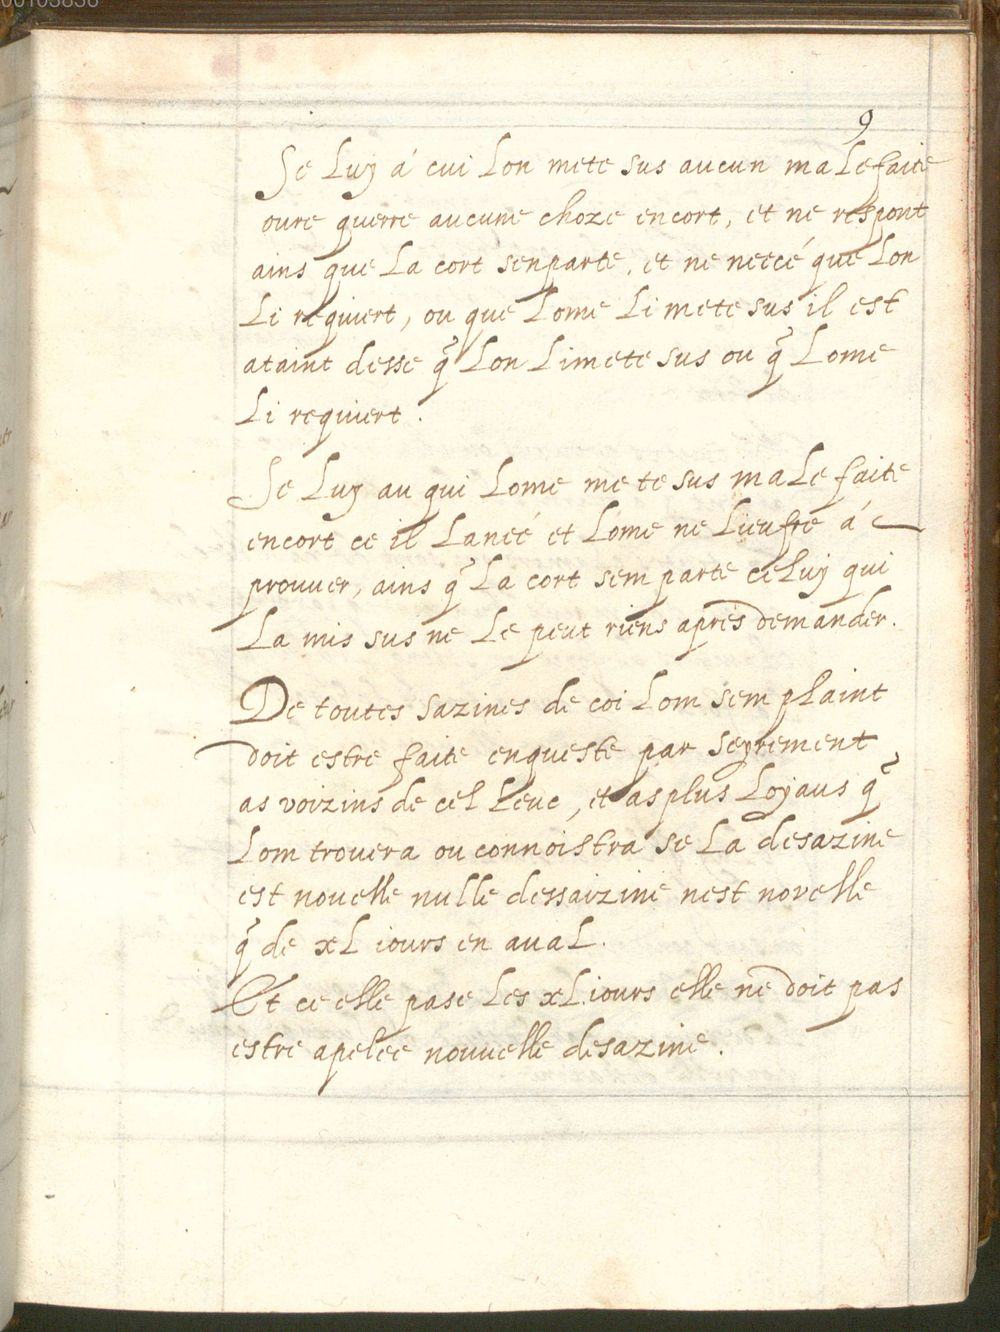 00103836
9
Se Luy á cui Lon mete sus aucun malefaite
oure querre aucune choze encort, et ne respont
ains que La cort senparte, et ne neecé que Lon
Li requiert, ou que Lome Li mete sus il est
ataint desse q̃ Lon Limete sus ou q̃ Lome
Li requiert.
Se Luy au qui Lome mete sus maLe faite
encort ce il Laneé et Lome ne Lieufre á
prouuer, ains q̃ La cort semparte celuy qui
La mis sus ne Le peut riens apres demander.
De toutes sazines de coi Lom sem plaint
doit estre faite enqueste par seyrement
as voizins de cel Leuc, et as plus Loyaus q̃
Lom trouera ou connoistra se La desazine
est nouelle nulle dessaizine nest novelle
q̃ de xL iours en aual.
Et ce elle pase Les xL.iours elle ne doit pas
estre apelee nouuelle desazine.